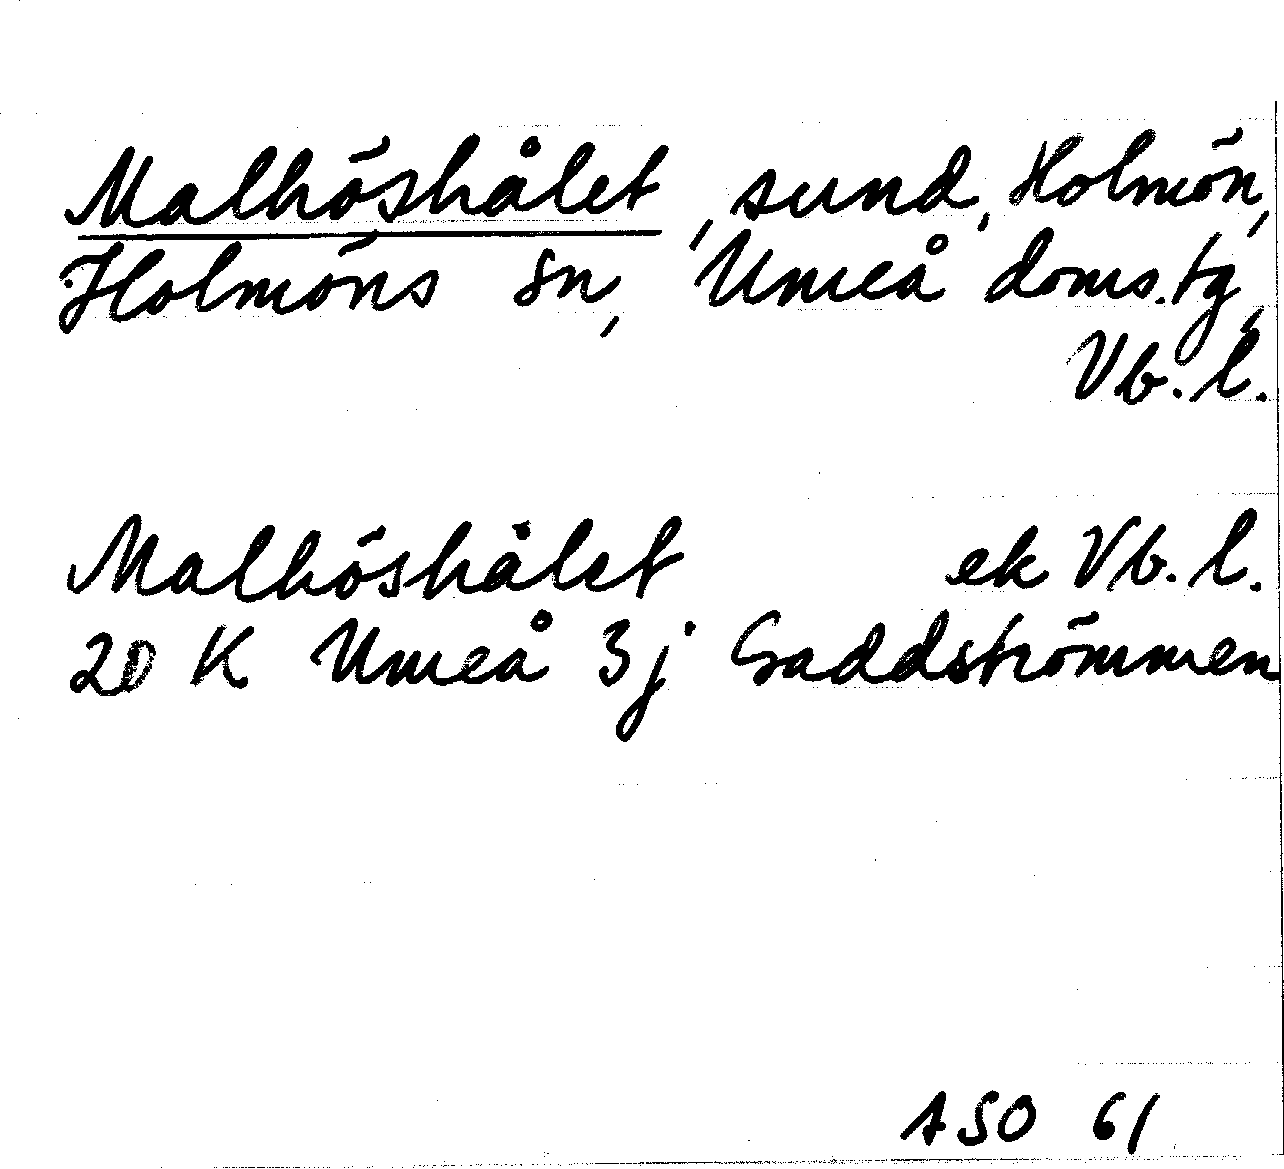 Malhöshålet, sund, Holmön,
Holmöns sn, Umeå doms.tg,
Vb. l.
Malhöshålet ek Vb. l.
20 K Umeå 3j Gaddströmmen
ASO 61